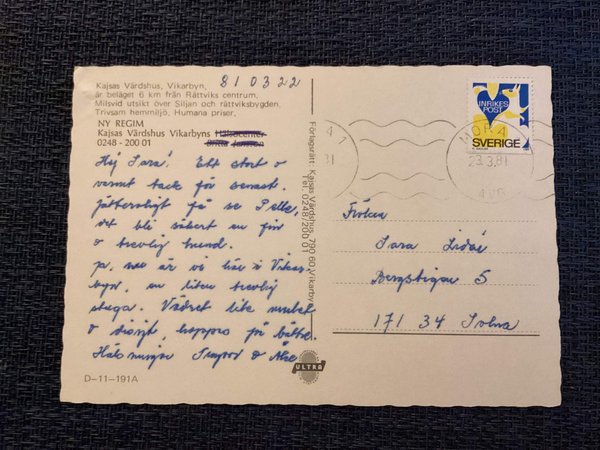 Kajsas Värdshus, Vikarbyn,
är beläget 6 km från Rättviks centrum.
Milsvid utsikt över Siljan och rättviksbygden.
Trivsam hemmiljö, Humana priser,
810322
NY REGIM
Kajsas Värdshus Vikarbyns
0248 - 200 01
Hej Sara! Ett stort o
varmt tack för senast.
Jätteroligt få se Pelle,
det blir säkert en fin
o trevlig hund.
Ja, nu är vi här i Vikar-
byn, en liten trevlig
stuga. Vädret lite mulet
o disigt, hoppas på bättre.
D-11-191A
Förlagsrätt: Kajsas Värdshus, 790 60 Vikarbyn
Tel. 0248/200 01
ULTRA
INRIKES
POST
SVERIGE
MORA 1
MORA
23.3.81
Fröken
Sara
Bergstigen 5
171 34 Solna